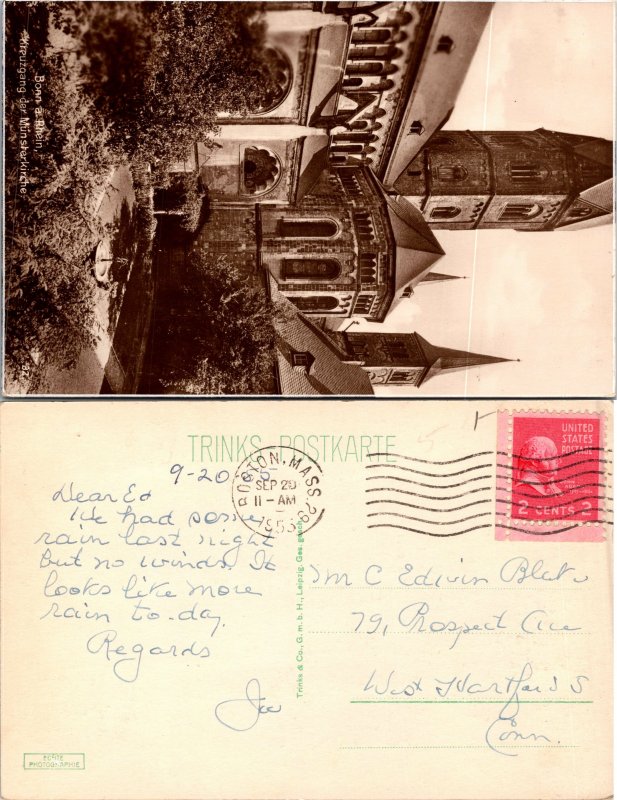 Bonn a. Rhein
Kreuzgang der Münsterkirche
TRINKS POSTKARTE
9-20
Dear Ed
We had some
rain last night
but no winds. It
looks like more
rain to-day.
Regards
Joe
BOSTON, MASS. 29
SEP 20
11-AM
UNITED
STATES
POSTAGE
2 CENTS 2
Mr C Edwin Blake
79, Prospect Ave
West Hartford
Conn.
Trinks & Co., G. m. b. H., Leipzig. Ges. gesch.
ECHTE
PHOTOGRAPHIE